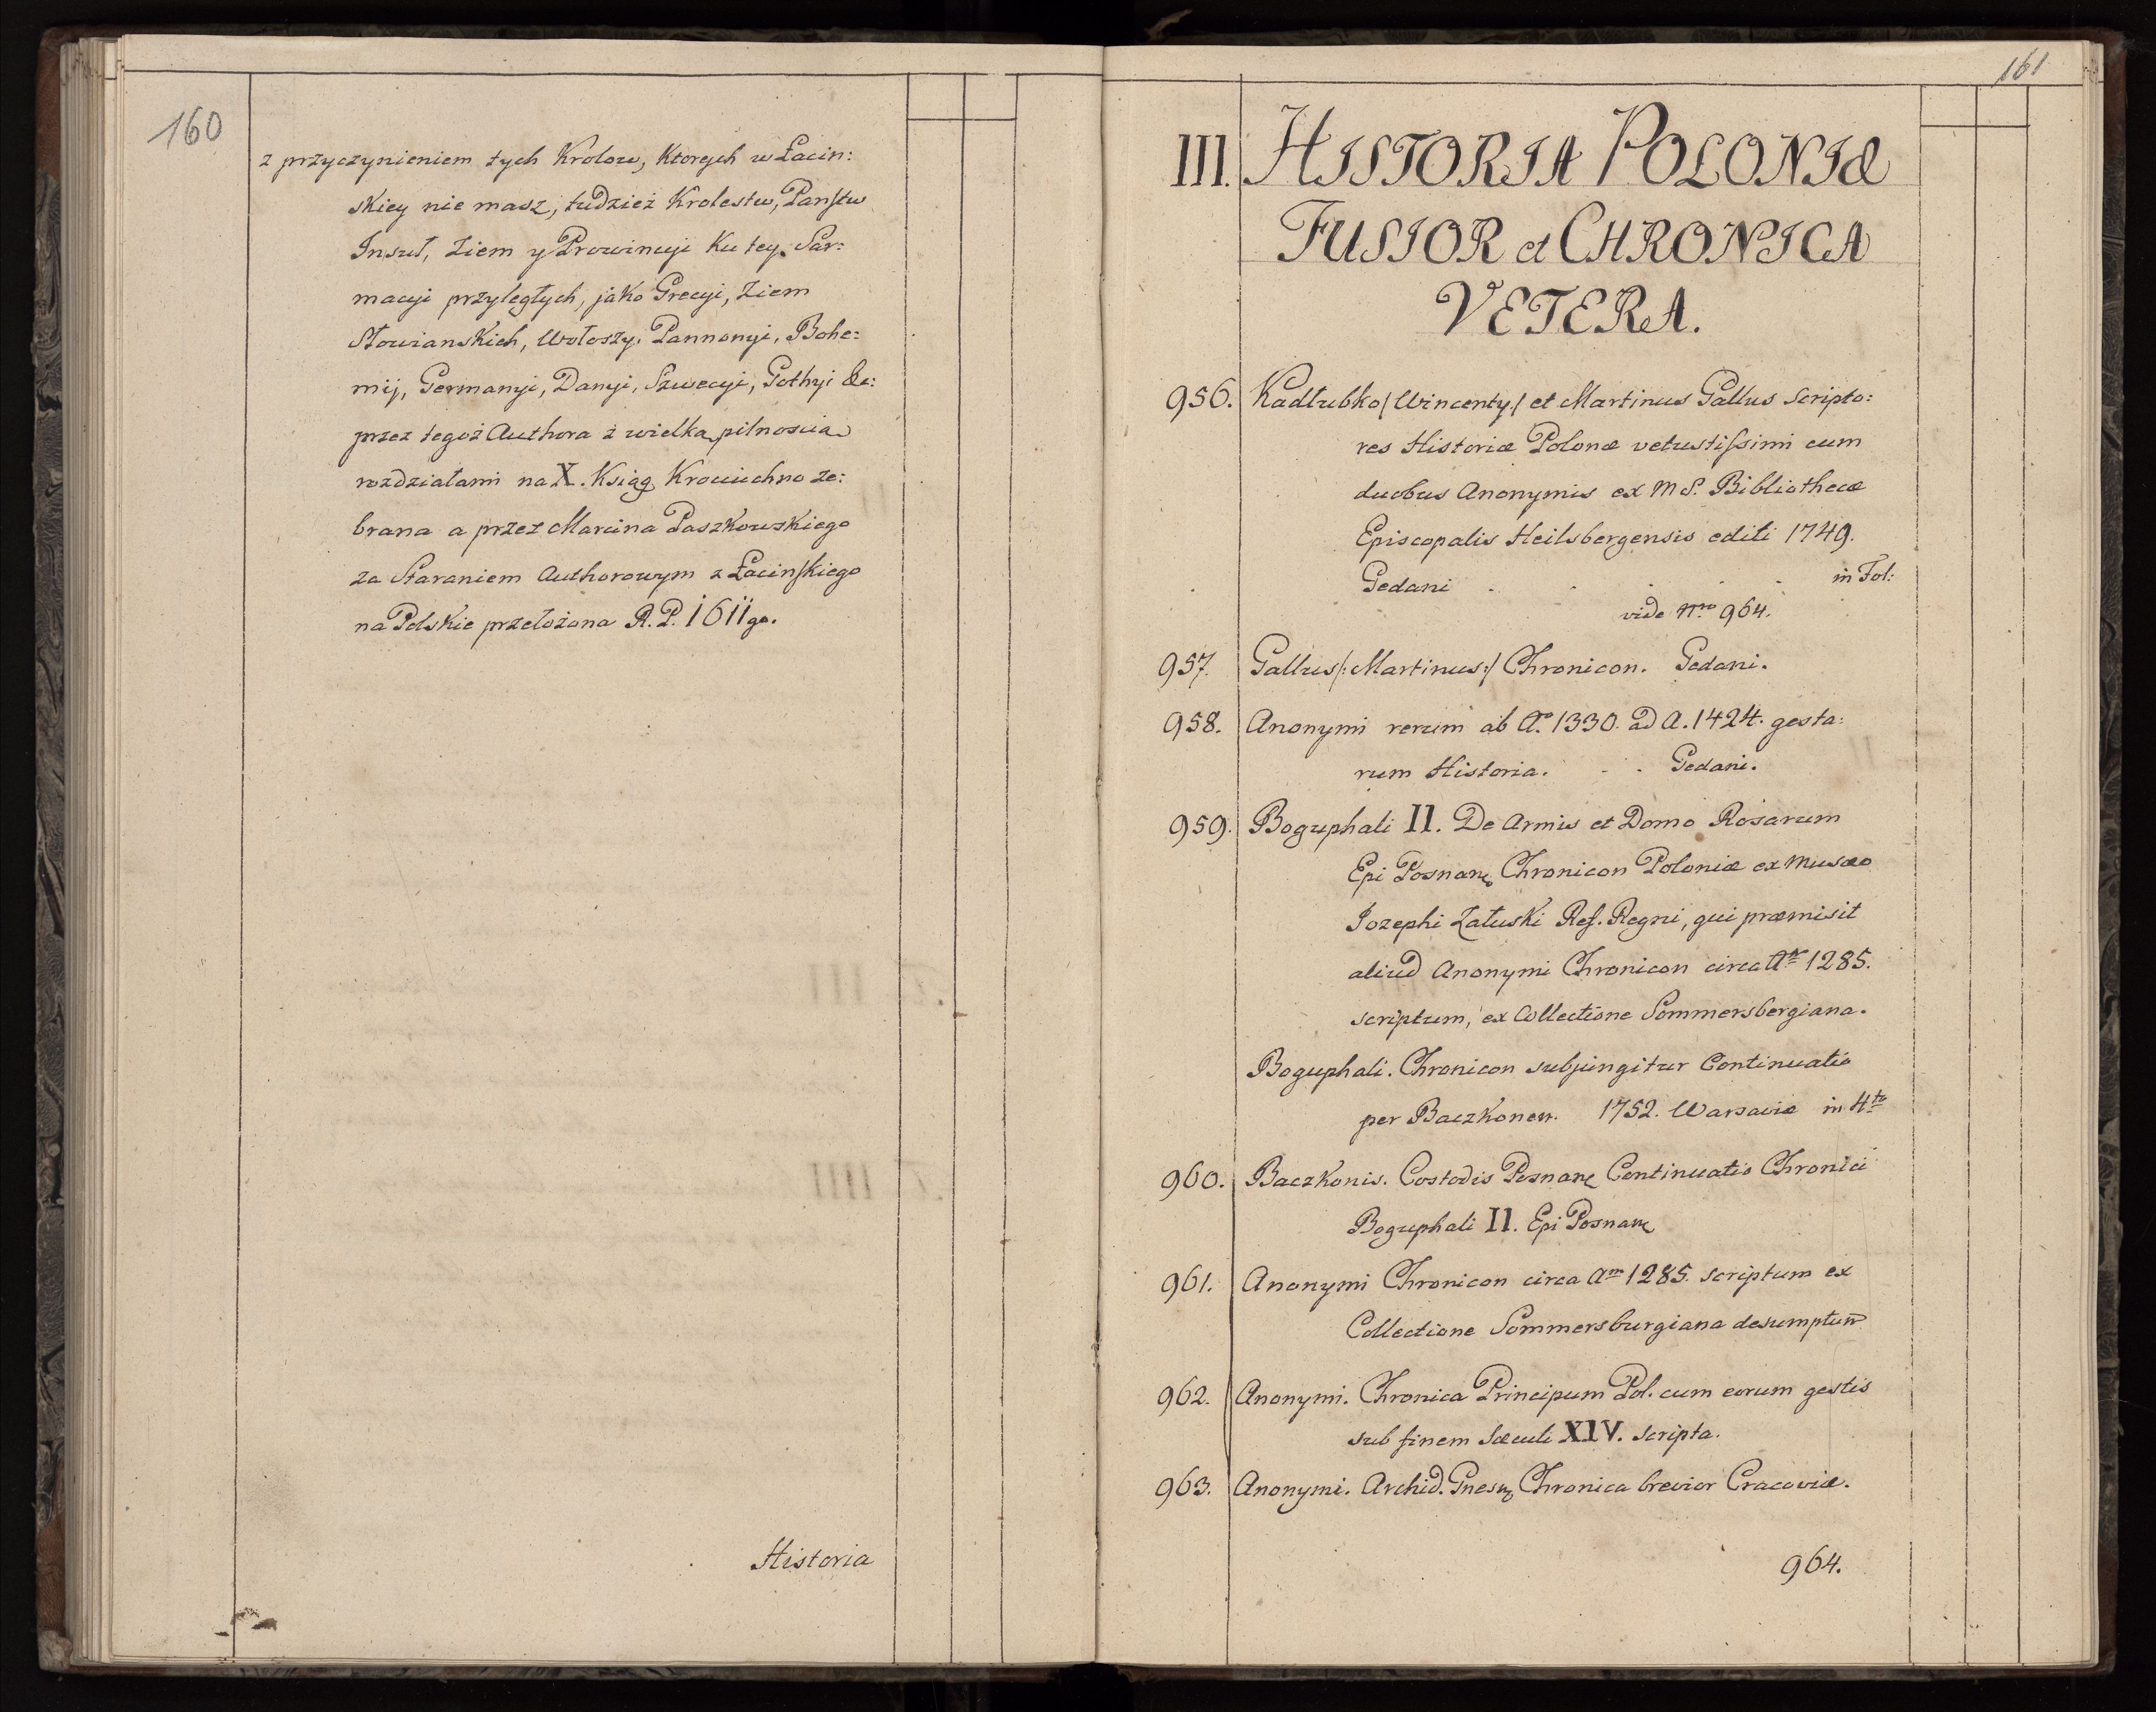 160
z przyczynieniem tych Krolow, Ktorych w Łacin:
skiey nie masz, tudzież Krolestw, Panſtw
Insuł, Ziem y Prowincyi Ku tey Sar:
macyi przyległych, jako Grecyi, Ziem
Słowianskich, Wołoszy, Pannonyi, Bohe:
mij, Germanyi, Danyi, Szwecyi, Gothyi &c:
przez tegoż Authora z wielką pilnoscią
rozdziałami na X. Ksiąg Krociuchno ze:
brana a przez Marcina Paszkowskiego
za Staraniem Authorowym z Łacinſkiego
na Polskie przełożona R. P. 1611go.
Historia
161
III. HISTORIA POLONIÆ
FUSIOR et CHRONICA
VETERA.
956. Kadłubko/Wincenty/ et Martinus Gallus Scripto:
res Historiæ Polonæ vetustiſsimi cum
duobus Anonymis ex MS. Bibliothecæ
Episcopalis Heilsbergensis editi 1749.
Gedani . . . . . in Fol:
vide Nro 964.
957. Gallus/:Martinus:/ Chronicon. Gedani.
958. Anonymi rerum ab Ao 1330. ad A. 1424. gesta:
rum Historia. . . Gedani.
959. Boguphali II. De Armis et Domo Rosarum
Epi Posnan. Chronicon Poloniæ ex Musæo
Jozephi Załuski Ref. Regni, qui præmisit
aliud Anonymi Chronicon circa Am 1285.
scriptum, ex Collectione Sommersbergiana.
Boguphali. Chronicon subjungitur Continuatio
per Baczkonem. 1752. Warsaviæ in 4to
960. Baczkonis. Costodis Posnan. Continuatio Chronici
Boguphali II. Epi Posnan.
961. Anonymi Chronicon circa Am 1285. scriptum ex
Collectione Sommersburgiana desumptum̄
962. Anonymi. Chronica Principum Pol. cum eorum gestis
sub finem Sæculi XIV. scripta.
963. Anonymi. Archid. Gnesn. Chronica brevior Cracoviæ.
964.